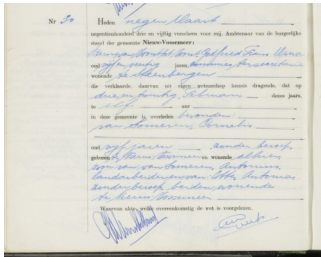 Nr 30 Heden negen Maart
negentienhonderd drie en vijftig verscheen voor mij, Ambtenaar van de burgerlijke
stand der gemeente Nieuw-Vossemeer:
oud vijfenveertig jaren,
wonende te Steenbergen
die verklaarde, daarvan uit eigen wetenschap kennis dragende, dat op
drie en twintig Februari dezes jaars,
te elf uur
in deze gemeente is overleden bevonden
van Someren, Cornelis
oud vijf jaren zonder beroep
geboren te Nieuw Vossemeer en wonende alhier
zoon van van Someren Antonius
landarbeider en van Antonia
zonder beroep beiden wonende
te Nieuw Vossemeer
Waarvan akte, welke overeenkomstig de wet is voorgelezen.